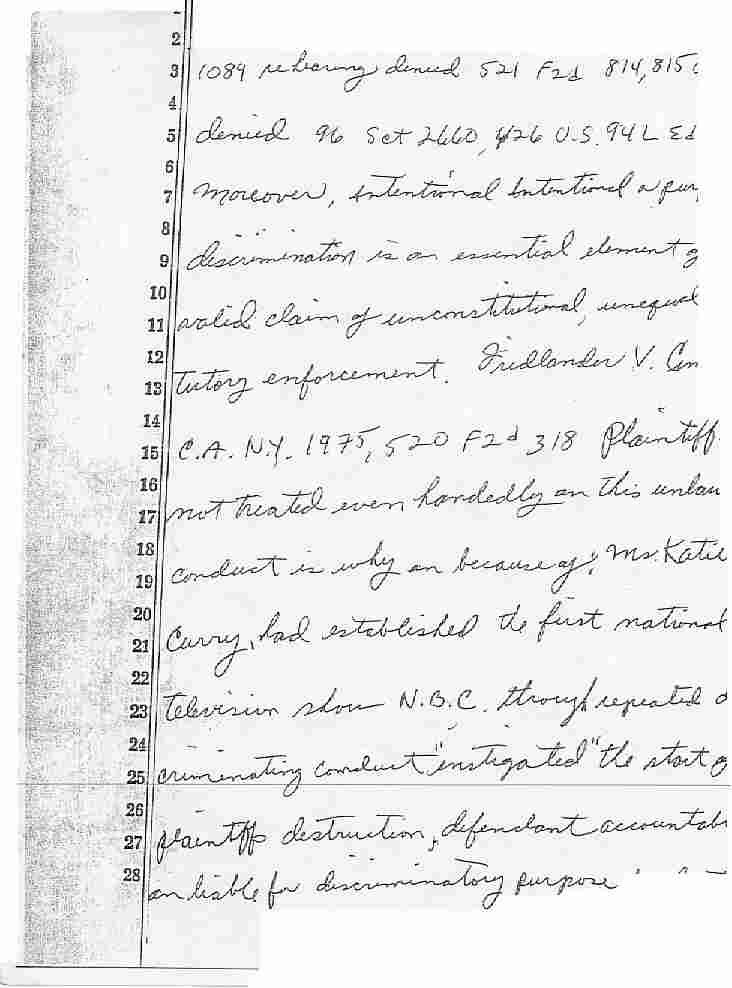 2
3 1089 rehearing denied 521 F2d 814, 815 c
4
5 denied 96 Sct 2660, 426 U.S. 94 L Ed
6
7 Moreover, intentional intentional a pur
8
9 discrimination is an essential element o
10
11 valid claim of unconstitutional, unequal
12
13 tutory enforcement. Friedlander V. Cim
14
15 C.A. N.Y. 1975, 520 F2d 318 Plaintiff
16
17 not treated even handedly an this unlaw
18
19 conduct is why an because of; Ms. Katie
20
21 Curry, had established the first national
22
23 television show N.B.C. through repeated d
24
25 criminating conduct "instigated" the start o
26
27 plaintiffs destruction, defendant accountab
28 an liable for discriminatory purpose